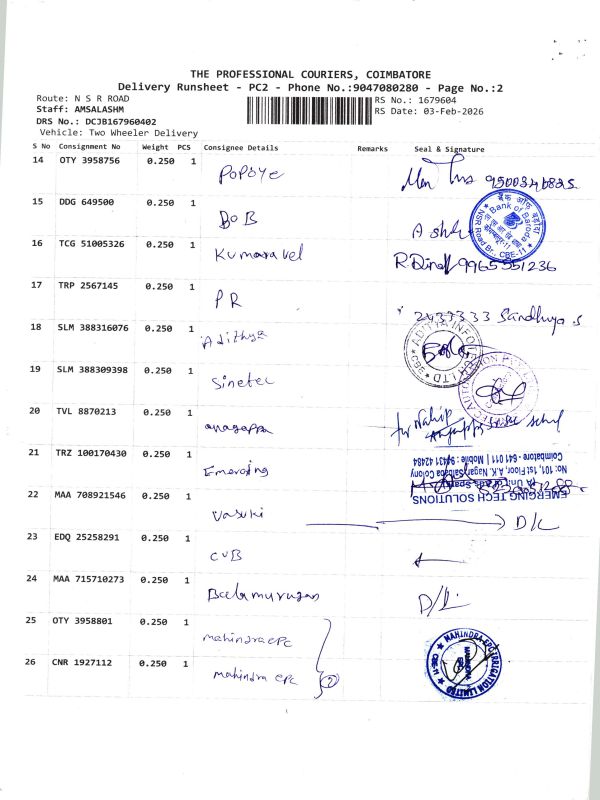 THE PROFESSIONAL COURIERS, COIMBATORE
Delivery Runsheet - PC2 - Phone No.:9047080280 - Page No.:2
Route: N S R ROAD
Staff: AMSALASHM
DRS No.: DCJB167960402
Vehicle: Two Wheeler Delivery
RS No.: 1679604
RS Date: 03-Feb-2026
S No Consignment No Weight PCS Consignee Details Remarks Seal & Signature
14 OTY 3958756 0.250 1 Popoye
15 DDG 649500 0.250 1 BOB
बैंक ऑफ़ बड़ौदा
Bank of Baroda
NSR Road Br., CBE-11
16 TCG 51005326 0.250 1 Kumaravel 9965551236
17 TRP 2567145 0.250 1 PR 2437333 Sandhya s
18 SLM 388316076 0.250 1 Adithya
ADITYA INFOTECH LTD
19 SLM 388309398 0.250 1 Sinetec
20 TVL 8870213 0.250 1 anagappa
21 TRZ 100170430 0.250 1 Emerging
EMERGING TECH SOLUTIONS
No: 101, 1st Floor, A.K. Nagar, Saibaba Colony
Coimbatore - 641 011 | Mobile : 98431 42484
22 MAA 708921546 0.250 1 Vasuki D/L
23 EDQ 25258291 0.250 1 CUB
24 MAA 715710273 0.250 1 Balamurugan D/L
25 OTY 3958801 0.250 1 mahindra epc
26 CNR 1927112 0.250 1 mahindra epc (2)
MAHINDRA EPC IRRIGATION LIMITED
CBE-11